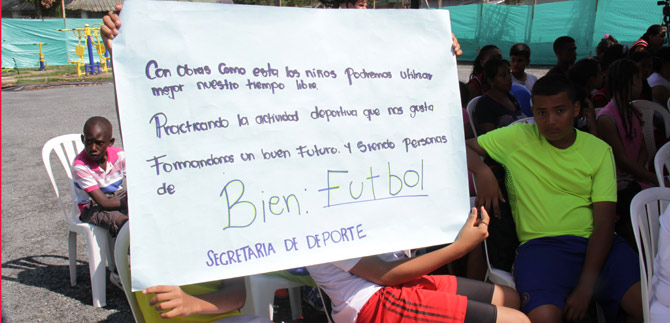 Con obras como esta los niños Podremos utilizar
mejor nuestro tiempo libre.
Practicando la actividad deportiva que nos gusta
Formandonos un buen Futuro. Y siendo personas
de
Bien: Futbol
SECRETARIA DE DEPORTE